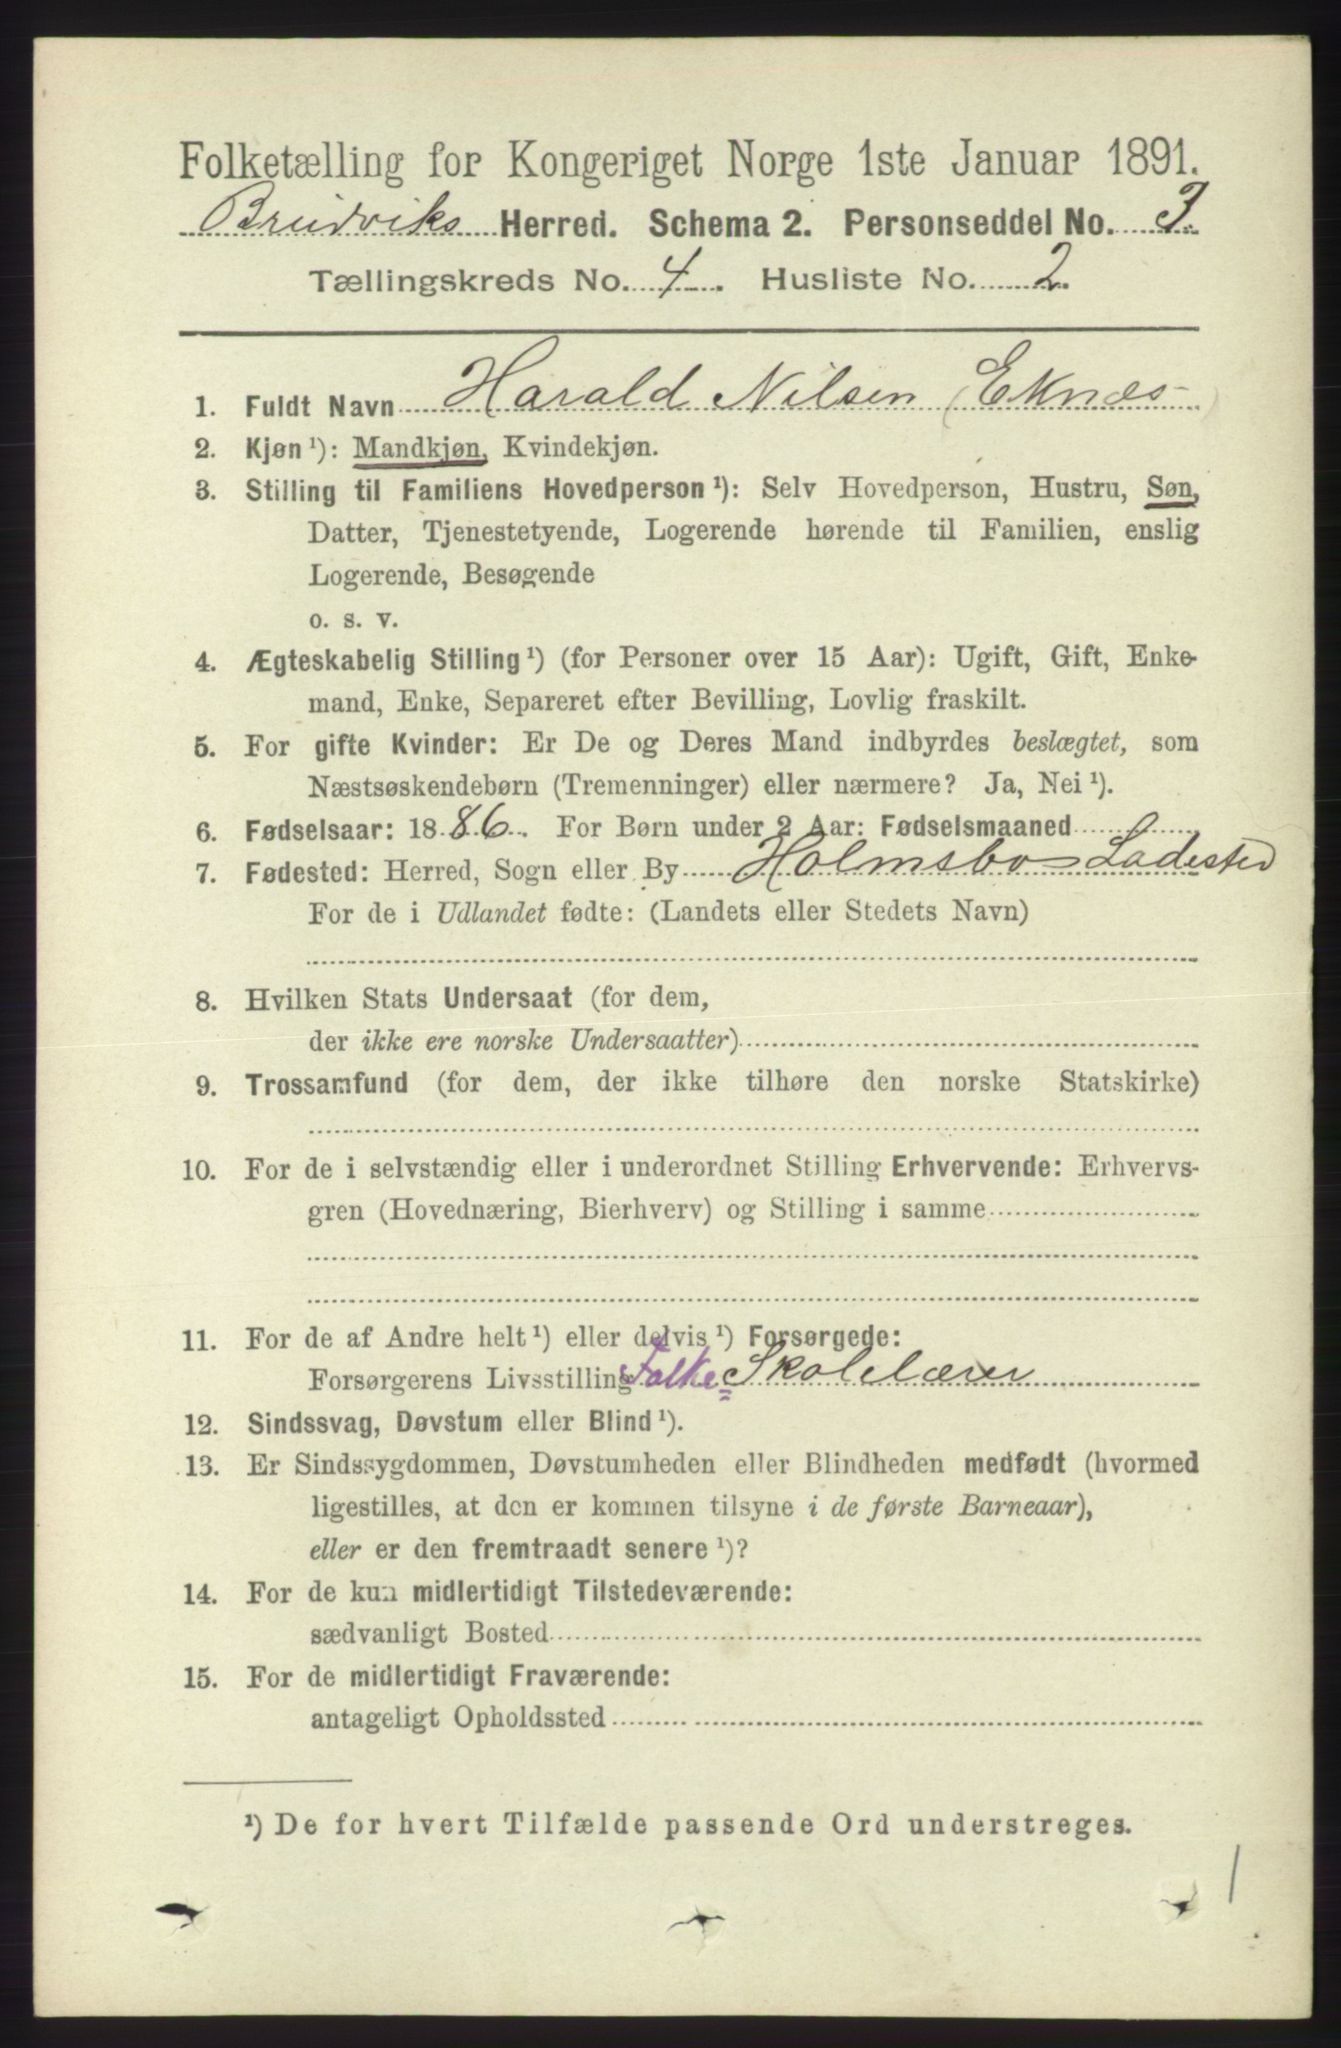 Folketælling for Kongeriget Norge 1ste Januar 1891.
Brudviks Herred. Schema 2. Personseddel No. 3.
Tællingskreds No. 4. Husliste No. 2.
1. Fuldt Navn Harald Nilsen (Eknæs)
2. Kjøn ¹): Mandkjøn, Kvindekjøn.
3. Stilling til Familiens Hovedperson ¹): Selv Hovedperson, Hustru, Søn,
Datter, Tjenestetyende, Logerende hørende til Familien, enslig
Logerende, Besøgende
o. s. v.
4. Ægteskabelig Stilling ¹) (for Personer over 15 Aar): Ugift, Gift, Enke-
mand, Enke, Separeret efter Bevilling, Lovlig fraskilt.
5. For gifte Kvinder: Er De og Deres Mand indbyrdes beslægtet, som
Næstsøskendebørn (Tremenninger) eller nærmere? Ja, Nei ¹).
6. Fødselsaar: 1886. For Børn under 2 Aar: Fødselsmaaned
7. Fødested: Herred, Sogn eller By Holmsbo Ladested
For de i Udlandet fødte: (Landets eller Stedets Navn)
8. Hvilken Stats Undersaat (for dem,
der ikke ere norske Undersaatter)
9. Trossamfund (for dem, der ikke tilhøre den norske Statskirke)
10. For de i selvstændig eller i underordnet Stilling Erhvervende: Erhvervs-
gren (Hovednæring, Bierhverv) og Stilling i samme
11. For de af Andre helt ¹) eller delvis ¹) Forsørgede:
Forsørgerens Livsstilling Folke= Skolelærer
12. Sindssvag, Døvstum eller Blind ¹).
13. Er Sindssygdommen, Døvstumheden eller Blindheden medfødt (hvormed
ligestilles, at den er kommen tilsyne i de første Barneaar),
eller er den fremtraadt senere ¹)?
14. For de kun midlertidigt Tilstedeværende:
sædvanligt Bosted
15. For de midlertidigt Fraværende:
antageligt Opholdssted
¹) De for hvert Tilfælde passende Ord understreges.
1